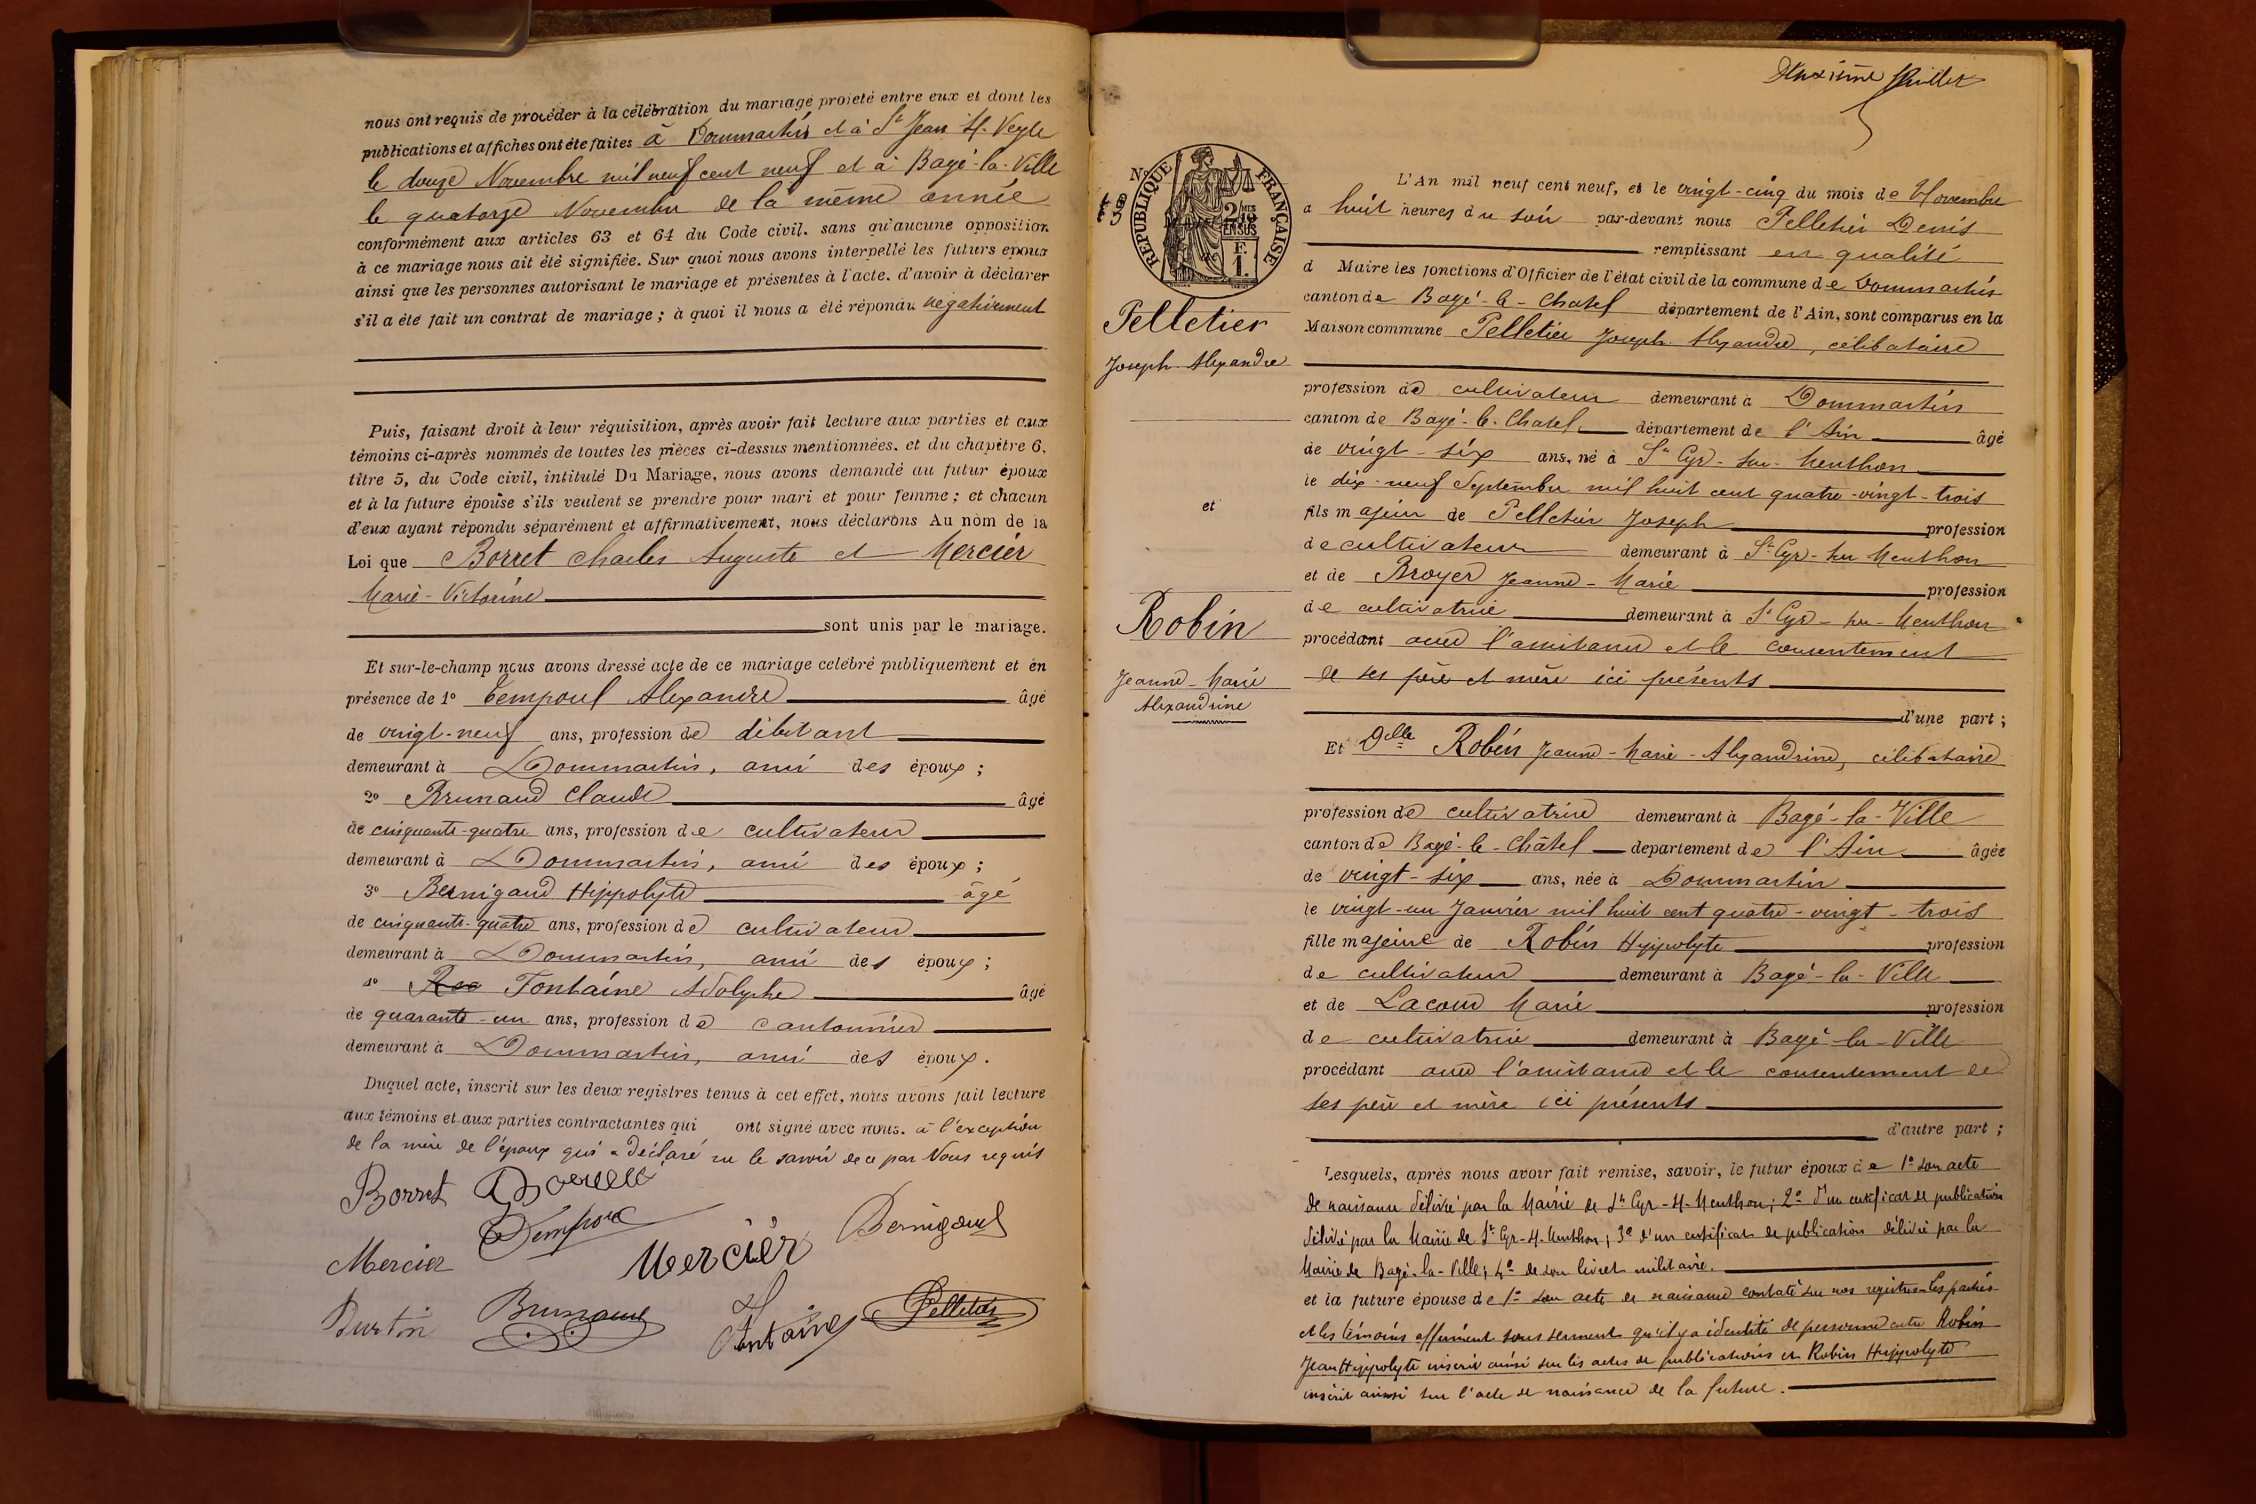 nous ont requis de procéder à la célébration du mariage projeté entre eux et dont les
publications et affiches ont été faites à Dommartin et à St Jean s/. Veyle
le douze Novembre mil neuf cent neuf et à Bagé-la-Ville
le quatorze Novembre de la même année
conformément aux articles 63 et 64 du Code civil, sans qu'aucune opposition
à ce mariage nous ait été signifiée. Sur quoi nous avons interpellé les futurs époux
ainsi que les personnes autorisant le mariage et présentes à l'acte, d'avoir à déclarer
s'il a été fait un contrat de mariage ; à quoi il nous a été répondu négativement
Puis, faisant droit à leur réquisition, après avoir fait lecture aux parties et aux
témoins ci-après nommés de toutes les pièces ci-dessus mentionnées, et du chapitre 6,
titre 5, du Code civil, intitulé Du Mariage, nous avons demandé au futur époux
et à la future épouse s'ils veulent se prendre pour mari et pour femme ; et chacun
d'eux ayant répondu séparément et affirmativement, nous déclarons Au nom de la
Loi que Borret Charles Auguste et Mercier
Marie-Victorine
sont unis par le mariage.
Et sur-le-champ nous avons dressé acte de ce mariage célébré publiquement et en
présence de 1º Tempoul Alexandre âgé
de vingt-neuf ans, profession de débitant
demeurant à Dommartin, ami des époux ;
2º Brunaud Claude âgé
de cinquante-quatre ans, profession de cultivateur
demeurant à Dommartin, ami des époux ;
3º Bernigaud Hippolyte âgé
de cinquante-quatre ans, profession de cultivateur
demeurant à Dommartin, ami des époux ;
4º Fontaine Adolphe âgé
de quarante-un ans, profession de cantonnier
demeurant à Dommartin, ami des époux.
Duquel acte, inscrit sur les deux registres tenus à cet effet, nous avons fait lecture
aux témoins et aux parties contractantes qui ont signé avec nous. à l'exception
de la mère de l'époux qui a déclaré ne le savoir de ce par Nous requis
Borret
Tempoul
Bernigaud
Mercier
Mercier
Burtin
Brunaud
Fontaine
Pelletier
Deuxième feuillet
Nº 38
RÉPUBLIQUE FRANÇAISE
2/10 EN SUS
F.
1.
L'An mil neuf cent neuf, et le vingt-cinq du mois de Novembre
a huit heures du soir par-devant nous Pelletier Denis
remplissant en qualité
d Maire les fonctions d'Officier de l'état civil de la commune de Dommartin
canton de Bagé-le-Chatel département de l'Ain, sont comparus en la
Maison commune Pelletier Joseph-Alexandre, célibataire
profession de cultivateur demeurant à Dommartin
canton de Bagé-le-Chatel département de l'Ain âgé
de vingt-six ans, né à St Cyr-sur-Menthon
le dix-neuf Septembre mil huit cent quatre-vingt-trois
fils majeur de Pelletier Joseph profession
de cultivateur demeurant à St Cyr-sur-Menthon
et de Broyer Jeanne-Marie profession
de cultivatrice demeurant à St Cyr-sur-Menthon
procédant avec l'assistance et le consentement
de ses père et mère ici présents
d'une part ;
Et Delle Robin Jeanne-Marie-Alexandrine, célibataire
profession de cultivatrice demeurant à Bagé-la-Ville
canton de Bagé-le-Châtel département de l'Ain âgée
de vingt-six ans, née à Dommartin
le vingt-un Janvier mil huit cent quatre-vingt-trois
fille majeure de Robin Hyppolyte profession
de cultivateur demeurant à Bagé-la-Ville
et de Lacour Marie profession
de cultivatrice demeurant à Bagé-la-Ville
procédant avec l'assistance et le consentement de
ses père et mère ici présents
d'autre part ;
Lesquels, après nous avoir fait remise, savoir, le futur époux de 1º son acte
de naissance délivré par la Mairie de St Cyr-s/-Menthon ; 2º d'un certificat de publication
délivré par la Mairie de St Cyr-s/-Menthon ; 3º d'un certificat de publication délivré par la
Mairie de Bagé-la-Ville ; 4º de son livret militaire.
et la future épouse de 1º son acte de naissance constaté sur nos registres. Les parties
et les témoins affirment sous serment qu'il y a identité de personne entre Robin
Jean Hyppolyte inscrit ainsi sur les actes de publications et Robin Hyppolyte
inscrit ainsi sur l'acte de naissance de la future.
Pelletier
Joseph-Alexandre
et
Robin
Jeanne-Marie
Alexandrine